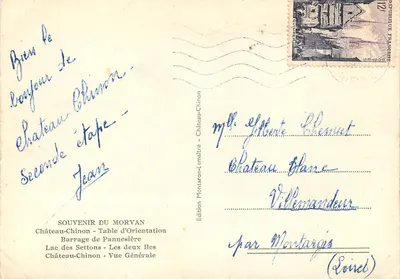 Bien le
bonjour de
Chateau Chinon -
Seconde étape -
Jean
SOUVENIR DU MORVAN
Château-Chinon - Table d'Orientation
Barrage de Pannesière
Lac des Settons - Les deux Iles
Château-Chinon - Vue Générale
Edition Montaron-Lemaître - Château-Chinon
12F
Mlle Gilberte Chesnut
Chateau Blanc
Villemandeur
par Montargis
(Loiret)